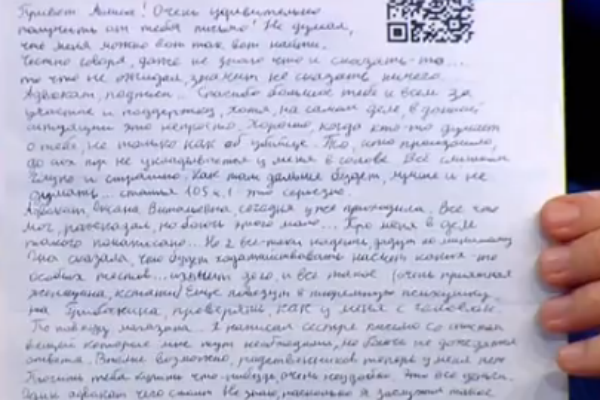 Привет Алиса! Очень удивительно
получить от тебя письмо! Не думал,
что меня можно вот так вот найти.
Честно говоря, даже не знаю что и сказать-то...
то что не ожидал, значит не сказать ничего...
Адвокат, подписи... Спасибо большое тебе и всем за
участие и поддержку, хотя, на самом деле, в данной
ситуации это непросто. Хорошо, когда кто-то думает
о тебе, не только как об убийце. То, что произошло,
до сих пор не укладывается у меня в голове. Всё слишком
глупо и страшно. Как там дальше будет, лучше и не
думать... статья 105 ч.1 это серьёзно.
Адвокат, Оксана Витальевна, сегодня уже приходила. Всё что
мог, рассказал, но боюсь этого мало... Про меня в деле
такого понаписано... Но 2 всё-таки надеть, дадут по минимуму
Она сказала, что будут ходатайствовать насчёт каких-то
особых тестов... изъятия, и всё такое (очень приятная
женщина, кстати) Ещё повезут в тюремную психушку,
на Грибакина, проверять как у меня с головой.
По поводу магазина... Я написал сестре письмо со списком
вещей которые мне тут необходимы, но боюсь не дождаться
ответа. Вполне возможно, родственников теперь у меня нет
Просить тебя купить что-нибудь, очень неудобно. Это всё деньги.
Один адвокат чего стоит Не знаю, насколько я заслужил такое